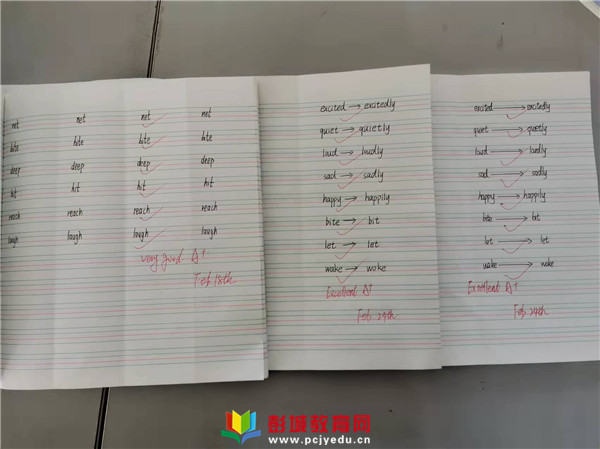 net net net net
bite bite bite bite
deep deep deep deep
hit hit hit hit
reach reach reach reach
laugh laugh laugh laugh
very good A+
Feb 18th
excited → excitedly
quiet → quietly
loud → loudly
sad → sadly
happy → happily
bite → bit
let → let
wake → woke
Excellent A+
Feb. 24th
excited → excitedly
quiet → quietly
loud → loudly
sad → sadly
happy → happily
bite → bit
let → let
wake → woke
Excellent A+
Feb. 24th
彭城教育网
www.pcjyedu.cn